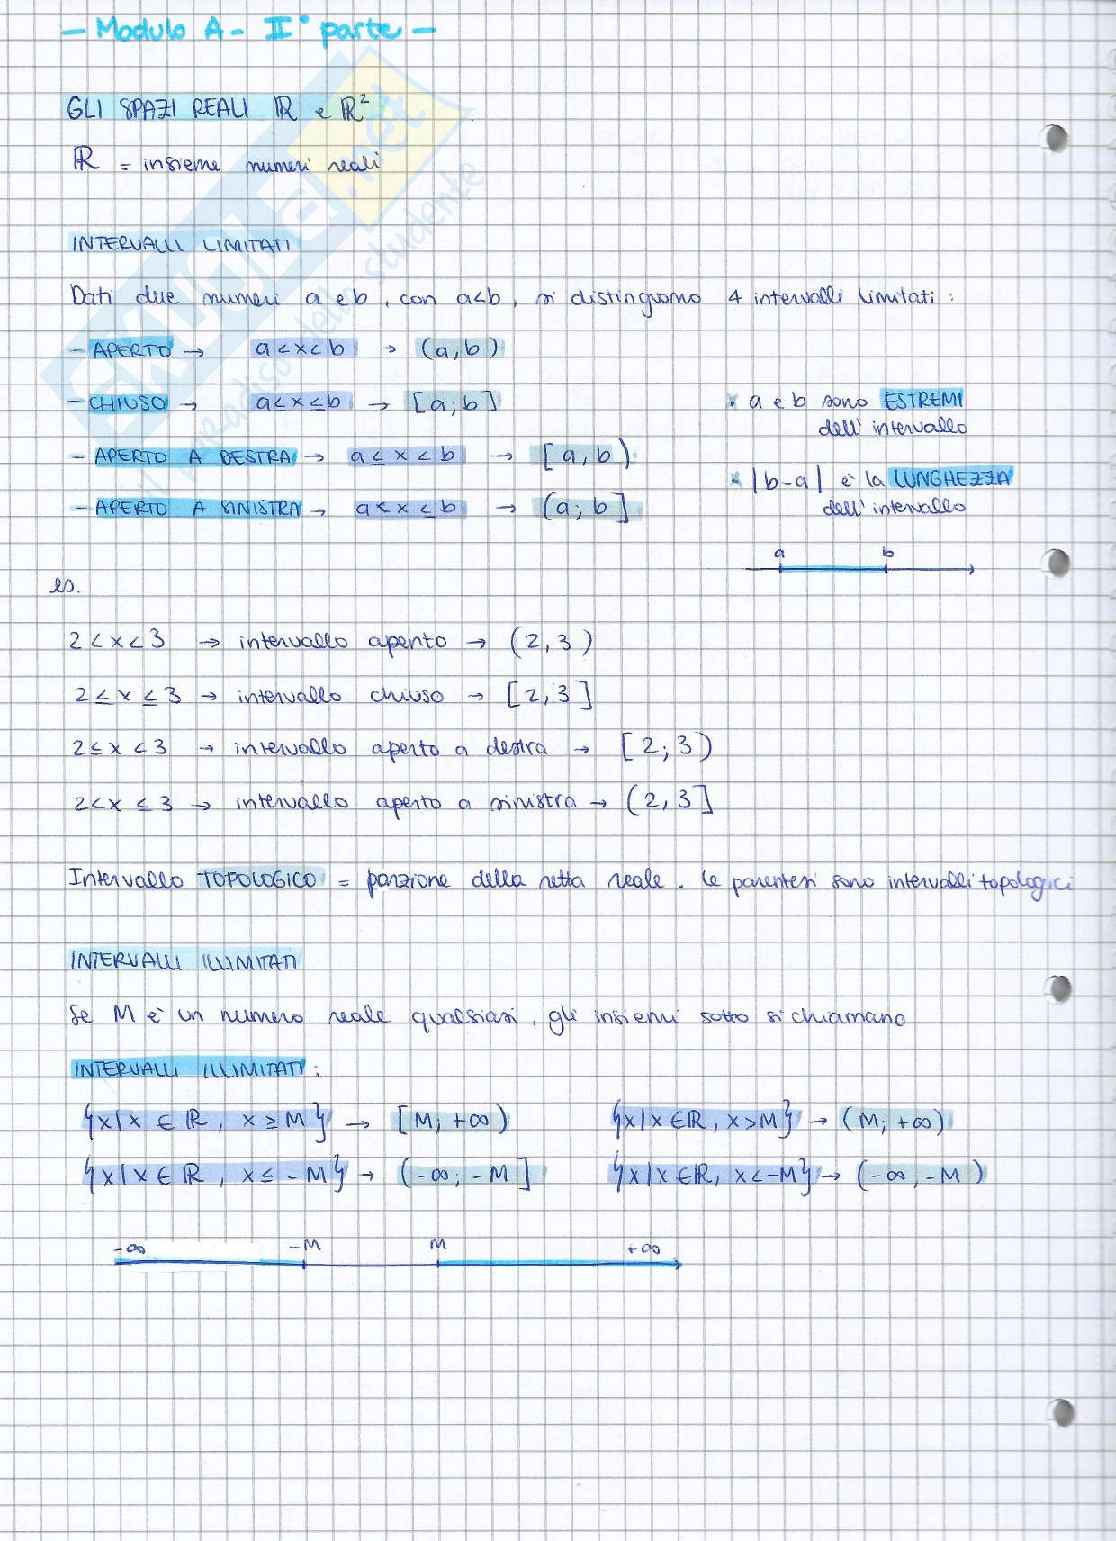 - Modulo A - II° parte -
GLI SPAZI REALI ℝ e ℝ²
ℝ = insieme numeri reali
INTERVALLI LIMITATI
Dati due numeri a e b, con a<b, si distinguono 4 intervalli limitati:
- APERTO → a<x<b → (a,b)
- CHIUSO → a<x≤b → [a;b]
- APERTO A DESTRA → a≤x<b → [a,b)
- APERTO A SINISTRA → a<x≤b → (a;b]
* a e b sono ESTREMI
dell'intervallo
* |b-a| è la LUNGHEZZA
dell'intervallo
a b
es.
2<x<3 → intervallo aperto → (2,3)
2≤x≤3 → intervallo chiuso → [2,3]
2≤x<3 → intervallo aperto a destra → [2;3)
2<x≤3 → intervallo aperto a sinistra → (2,3]
Intervallo TOPOLOGICO = porzione della retta reale. Le parentesi sono intervalli topologici
INTERVALLI ILLIMITATI
Se M è un numero reale qualsiasi, gli insiemi sotto si chiamano
INTERVALLI ILLIMITATI:
{x|x∈ℝ, x≥M} → [M;+∞) {x|x∈ℝ, x>M} → (M;+∞)
{x|x∈ℝ, x≤-M} → (-∞;-M] {x|x∈ℝ, x<-M} → (-∞,-M)
-∞ -M M +∞
skuola.net
il paradiso dello studente